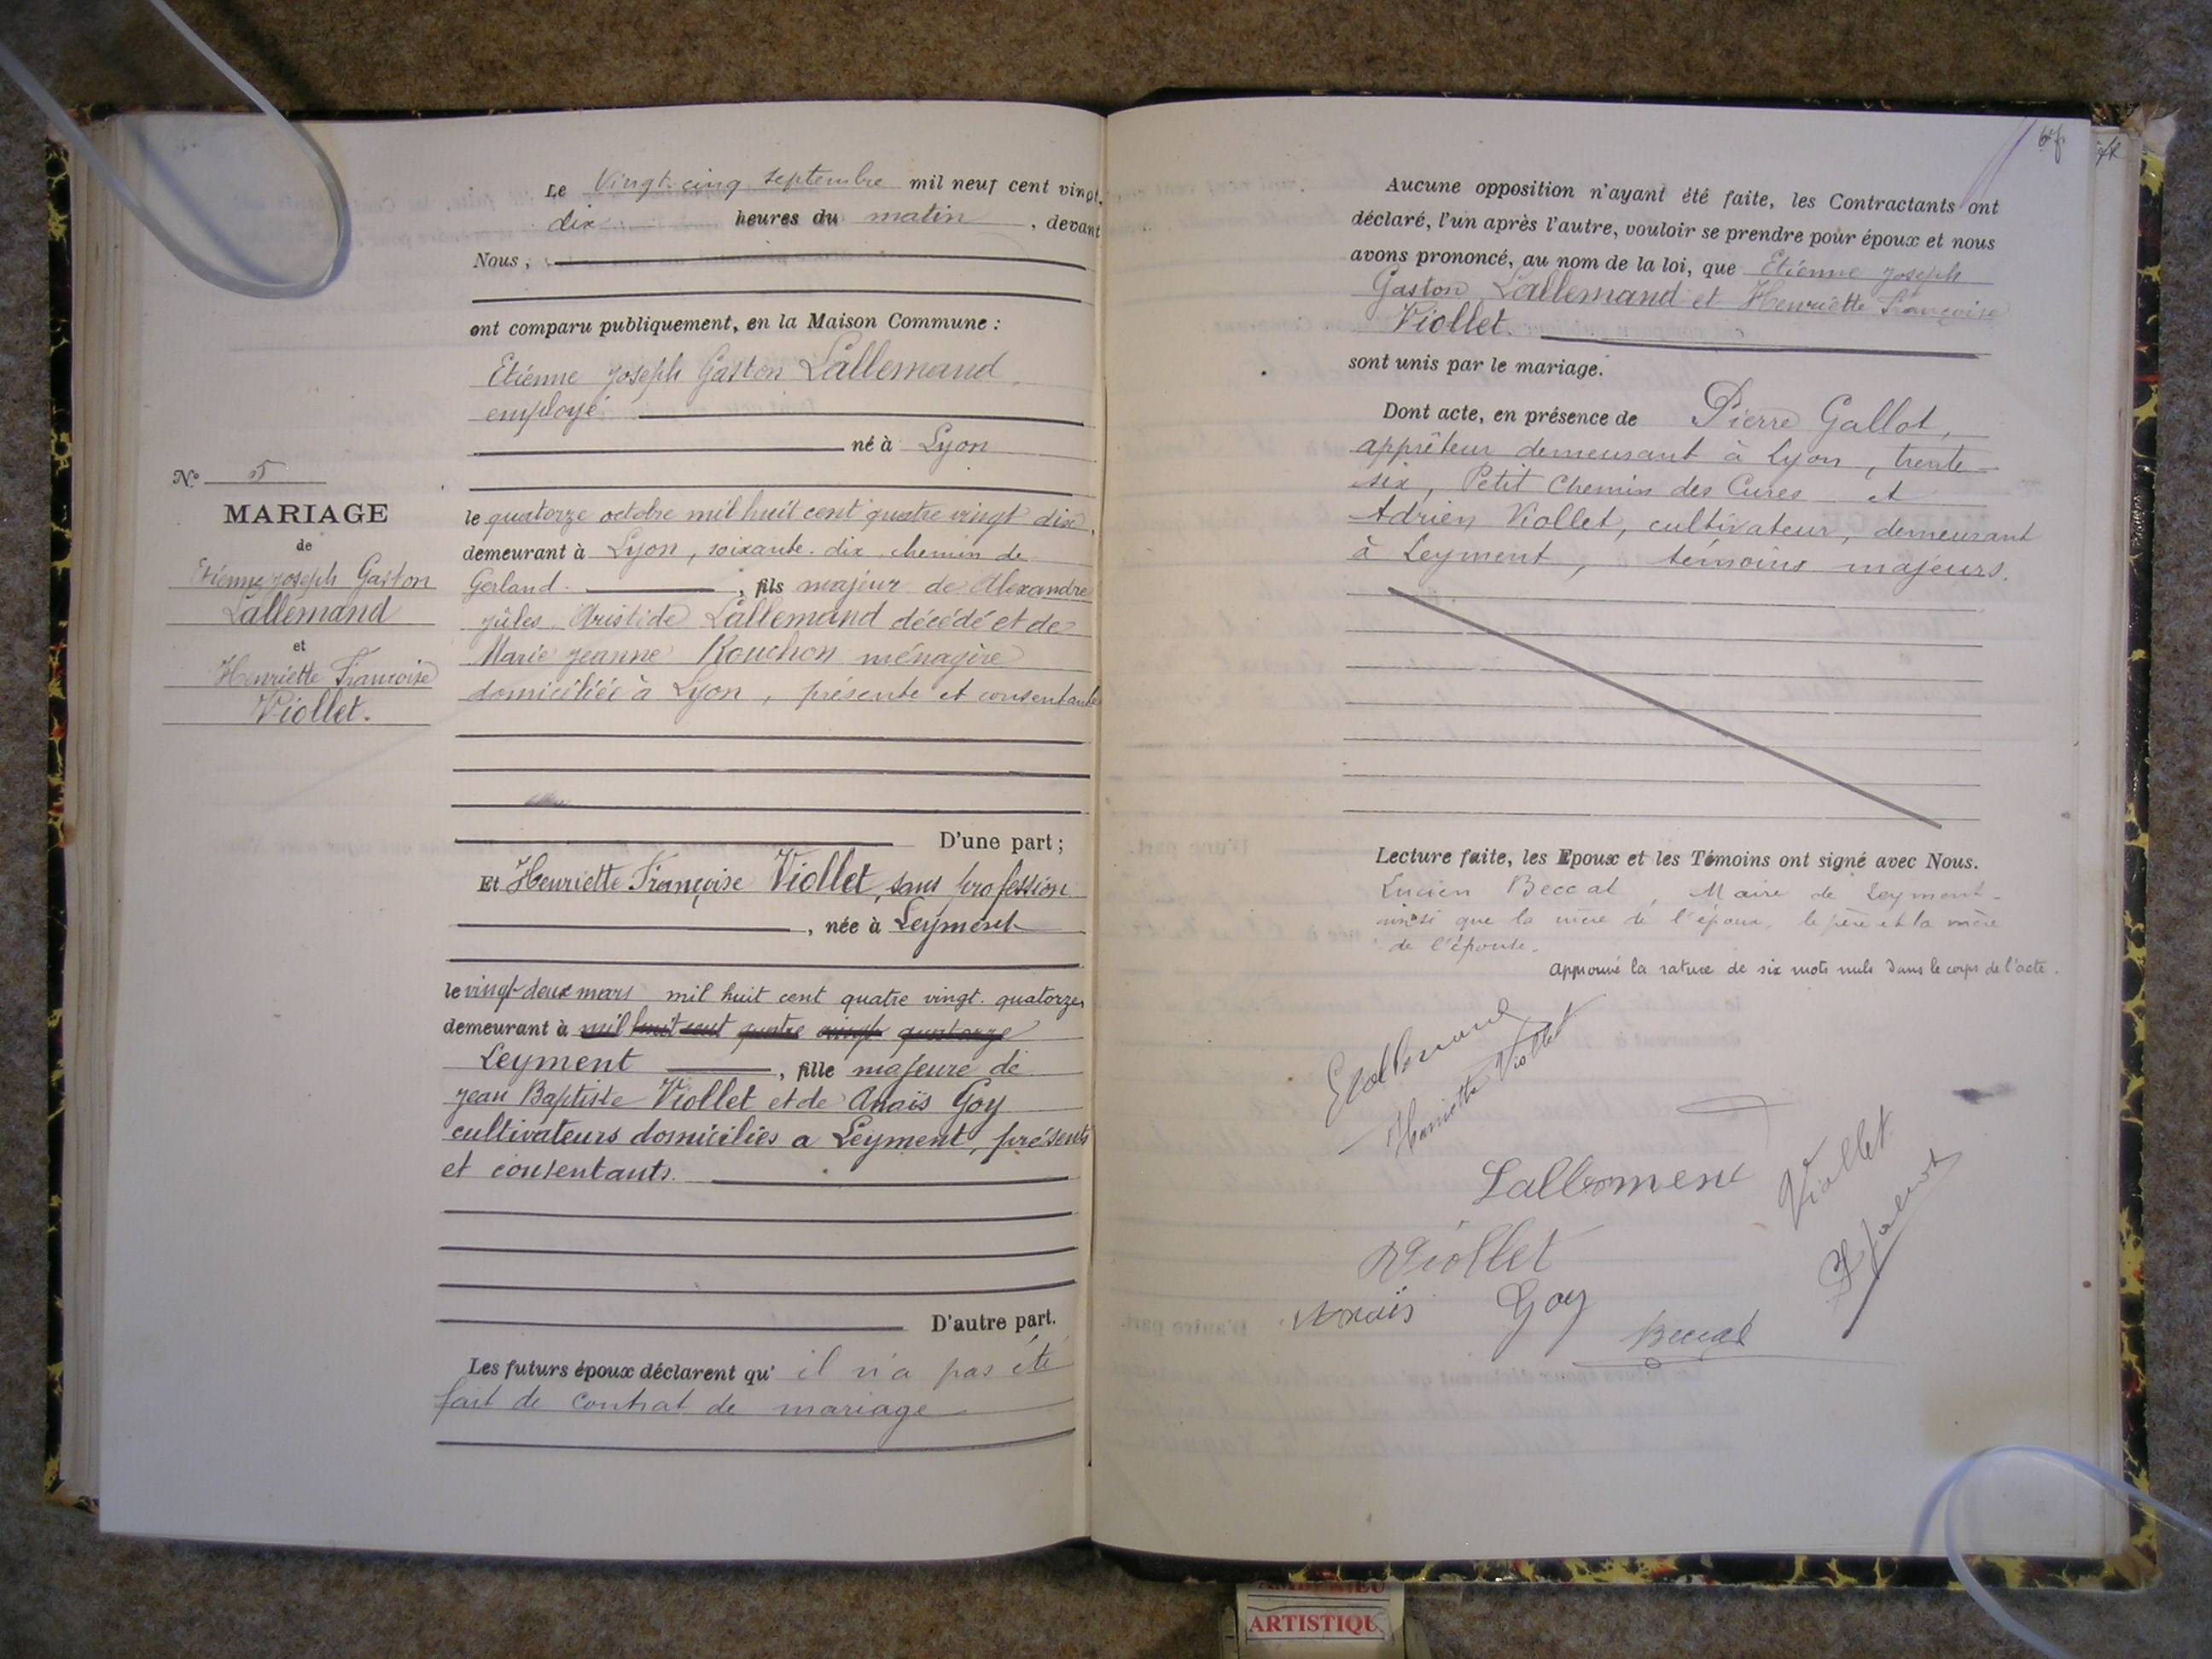 Le Vingt-cinq septembre mil neuf cent vingt,
dix heures du matin, devant
Nous,
ont comparu publiquement, en la Maison Commune :
Etiénne Joseph Gaston Lallemand,
employé
né à Lyon
le quatorze octobre mil huit cent quatre vingt dix,
demeurant à Lyon, soixante-dix chemin de
Gerland, fils majeur de Alexandre
Jules Aristide Lallemand décédé et de
Marie Jeanne Rouchon ménagère
domiciliée à Lyon, présente et consentante
D'une part ;
Et Henriette Françoise Viollet, sans profession
, née à Leyment
le vingt-deux mars mil huit cent quatre vingt. quatorze,
demeurant à mil huit cent quatre vingt quatorze
Leyment, fille majeure de
Jean Baptiste Viollet et de Anaïs Goy
cultivateurs domiciliés a Leyment, présents
et consentants.
D'autre part.
Les futurs époux déclarent qu' il n'a pas été
fait de contrat de mariage
N° 5
MARIAGE
de
Etiénne Joseph Gaston
Lallemand
et
Henriette Françoise
Viollet.
Aucune opposition n'ayant été faite, les Contractants ont
déclaré, l'un après l'autre, vouloir se prendre pour époux et nous
avons prononcé, au nom de la loi, que Etiénne Joseph
Gaston Lallemand et Henriette Françoise
Viollet.
sont unis par le mariage.
Dont acte, en présence de Pierre Gallot,
apprêteur demeurant à Lyon, trente-
six, Petit Chemin des Cures et
Adrien Viollet, cultivateur, demeurant
à Leyment, témoins majeurs.
Lecture faite, les Epoux et les Témoins ont signé avec Nous.
Lucien Beccat, Maire de Leyment-
ainsi que la mère de l'époux, le père et la mère
de l'épouse.
approuvé la rature de six mots nuls dans le corps de l'acte.
Henriette Viollet
Viollet
Viollet
Anaïs Goy
Beccat
ARTISTIQU